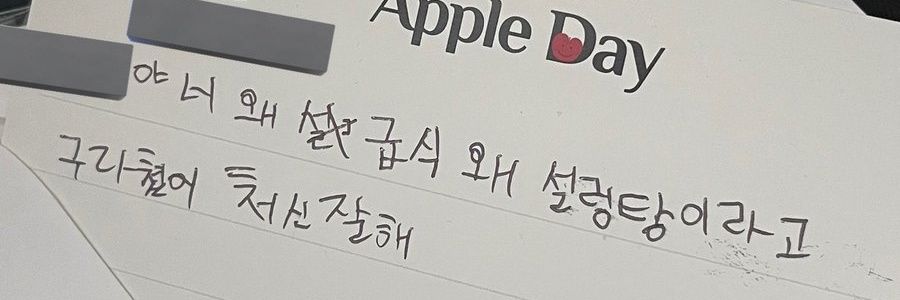 Apple Day
야 너 왜 급식 왜 설렁탕이라고
구라쳤어 처신잘해